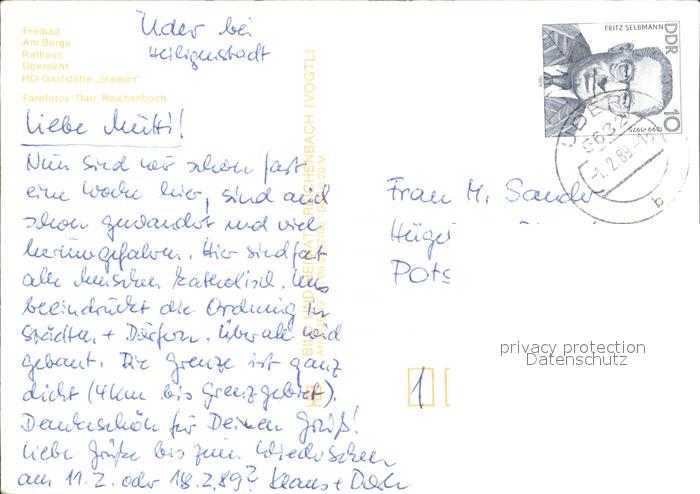 Freibad
Am Berge
Rathaus
Übersicht
HO-Gaststätte „Stadion"
Farbfotos: Darr, Reichenbach
Üder bei
Heiligenstadt
Liebe Mutti!
Nun sind wir schon fast
eine Woche hier, sind auch
schon gewandert und viel
herumgefahren. Hier sind fast
alle Menschen katholisch. Uns
beeindruckt die Ordnung in
Städten + Dörfern. Überall wird
gebaut. Die Grenze ist ganz
dicht (4 km bis Grenzgebiet).
Dankeschön für Deinen Gruß!
Liebe Grüße bis zum Wiedersehen
am 11.2. oder 18.2.89? Klaus +
BILD UND HEIMAT REICHENBACH (VOGTL)
FRITZ SELBMANN
DDR
10
1899-1975
UDER
5632
-1.2.89.-15
b
Frau M. Sander
Hügel
Pots
1
privacy protection
Datenschutz